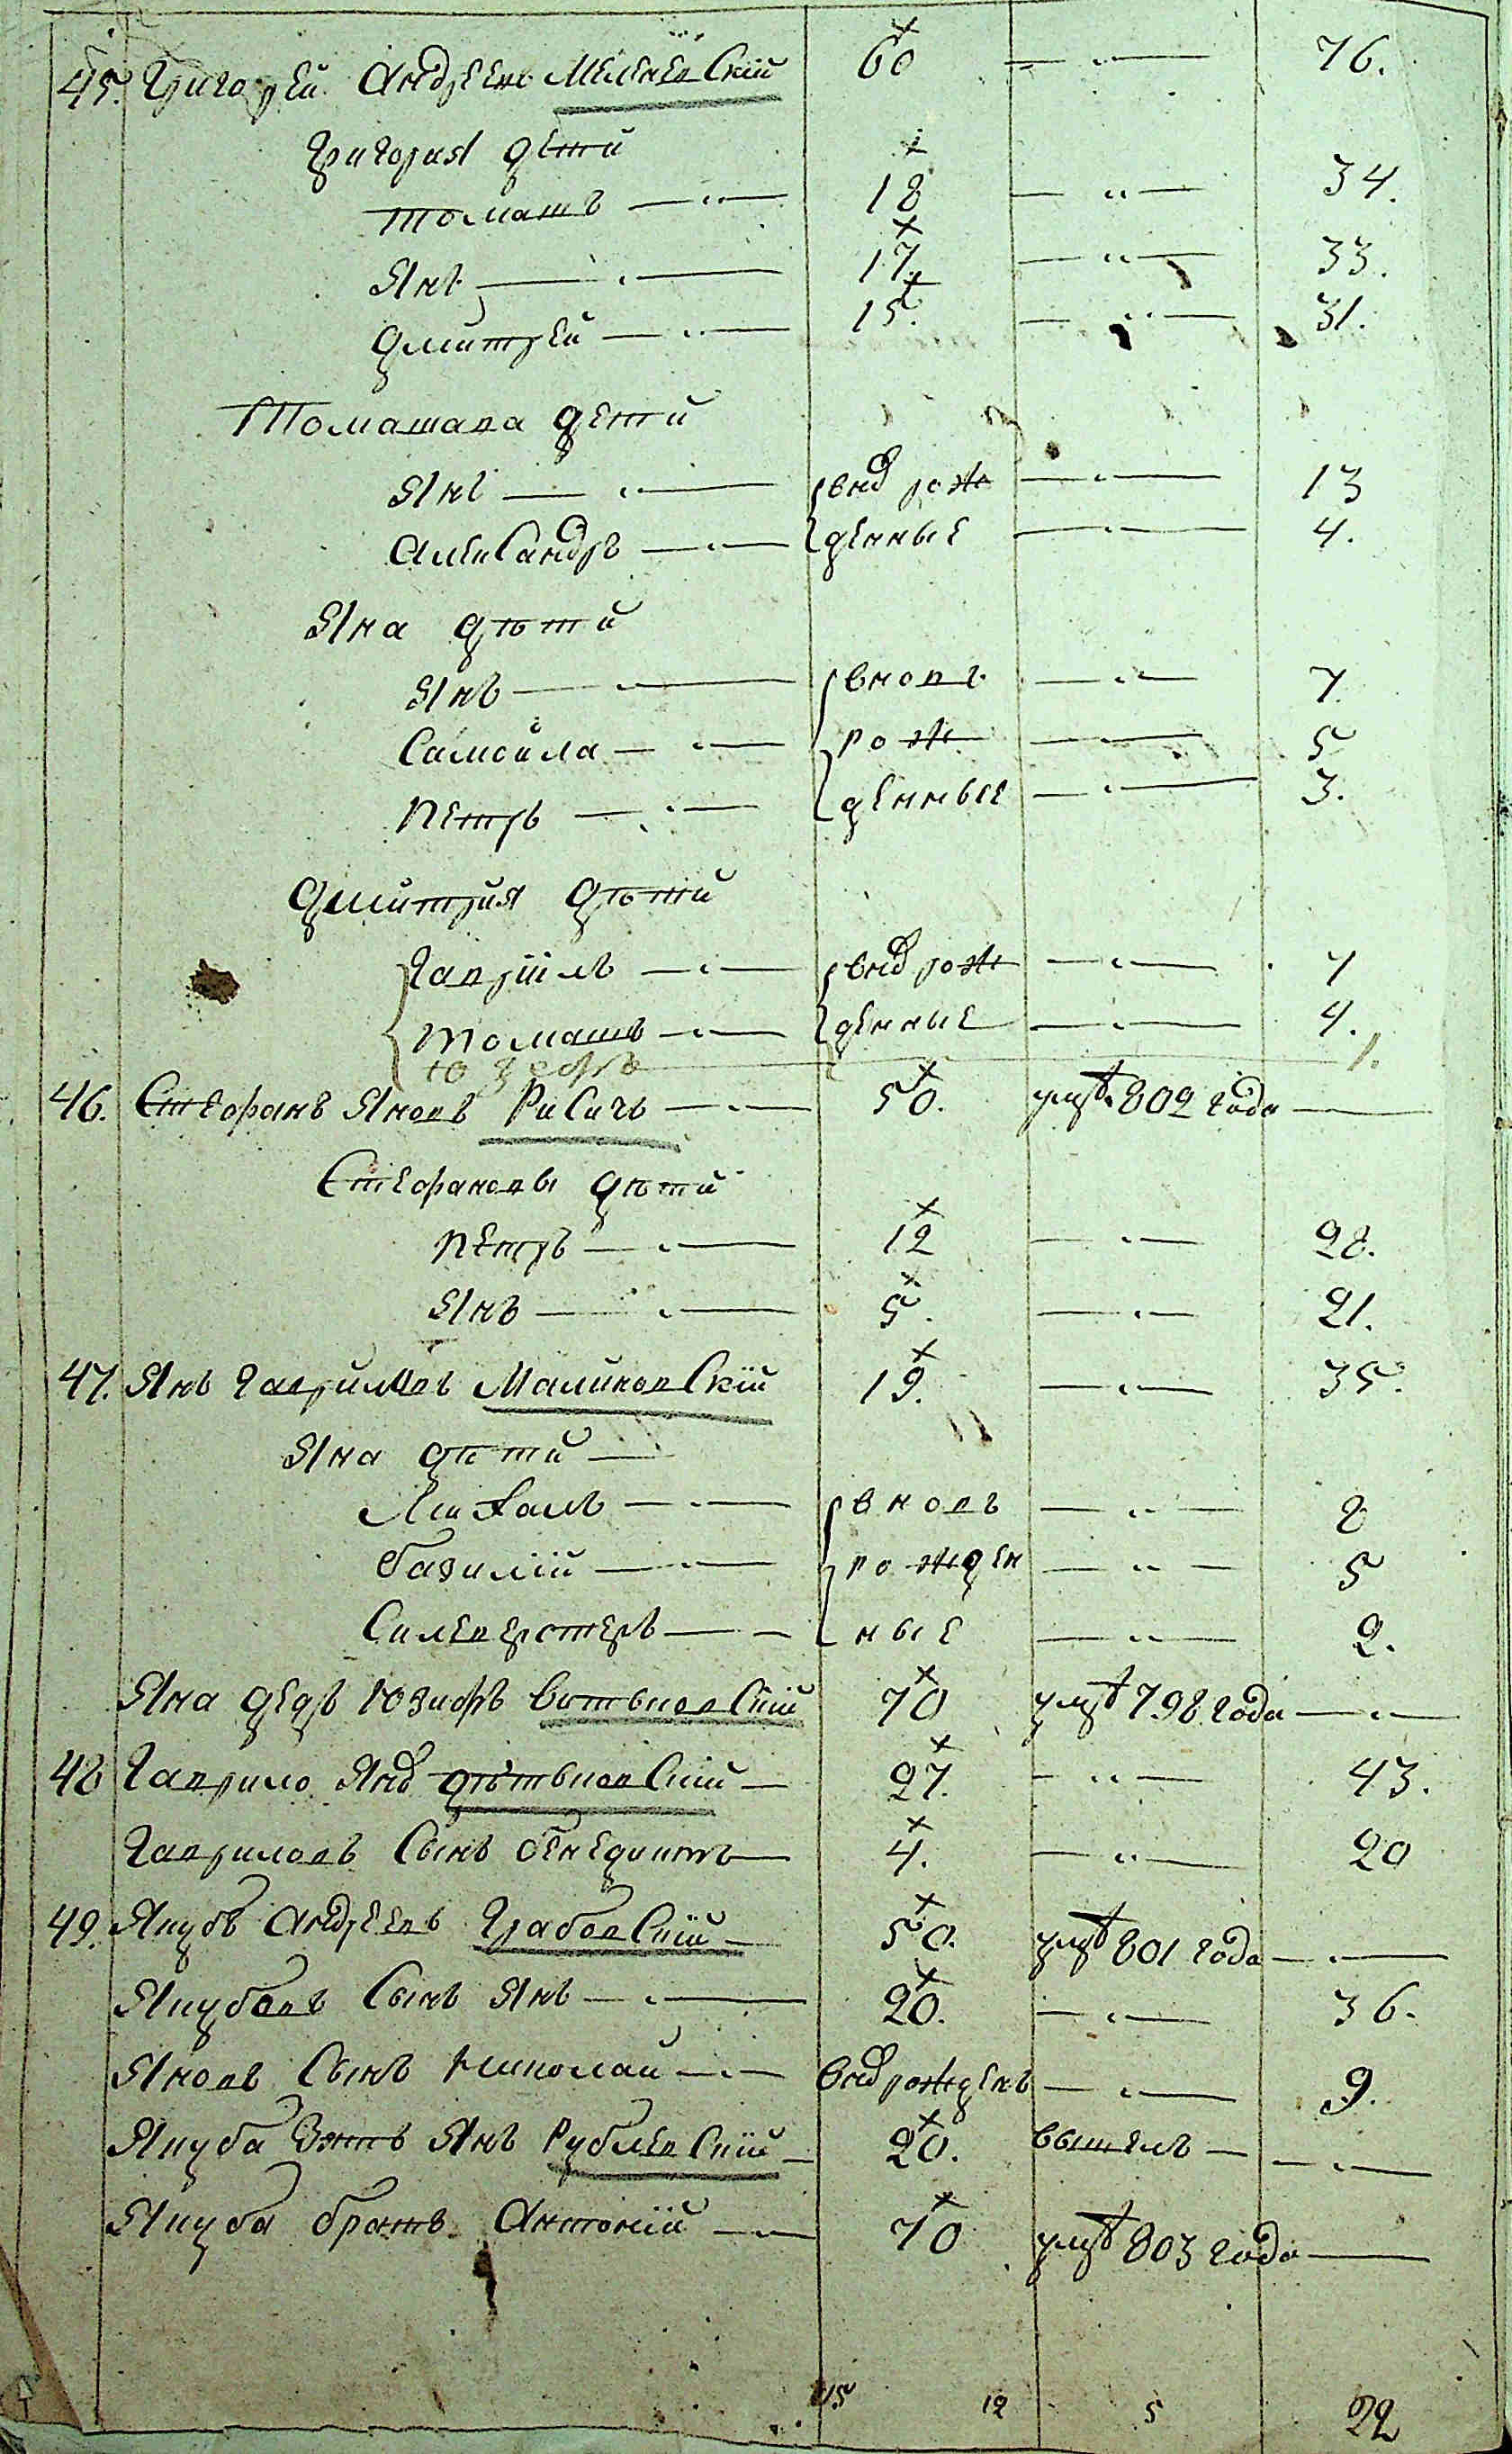 45. Григорей Андреевъ Мелевскій 60 — " — 76.
Григорія дѣти
Томашъ — " — 18 — " — 34.
Янъ — " — 17. — " — 33.
Дмитрей — " — 15. — " — 31.
Томашава дети
Янъ — " — внов рож — " — 13
Александръ — " — денные — " — 4.
Яна дѣти
Янъ — " — вновъ — " — 7.
Самойла — " — рож — " — 5
Петръ — " — денные — " — 3.
Дмитрія дѣти
Гавріилъ — " — внов рож — " — 7
Томашъ — " — денные — " — 4.
Юзефъ — 1.
46. Стефанъ Яновъ Рисичъ — " — 50. умр. 802 года —
Стефановы дѣти
Петръ — " — 12 — " — 28.
Янъ — " — 5. — " — 21.
47. Янъ Гавриловъ Малиновскій 19. — " — 35.
Яна дѣти —
Михалъ — " — вновъ — " — 8
Базилій — " — рожден — " — 5
Силвестеръ — " — ные — " — 2.
Яна дедъ Юзифъ 70 умр 798 года — " —
48 Гаврило Янов — 27. — " — 43.
Гавриловъ Сынъ Бенедиктъ — 4. — " — 20
49. Якубъ Андреевъ Грабовскій — 50. умр 801 года — " —
Якубовъ Сынъ Янъ — " — 20. — " — 36.
Яновъ Сынъ Миколай — " — внов рожденъ — " — 9.
Якуба Зять Янъ Рублевскій — 20. вышелъ — " —
Якуба братъ Антоній — " — 70 умр 803 года —
15 12 5 22